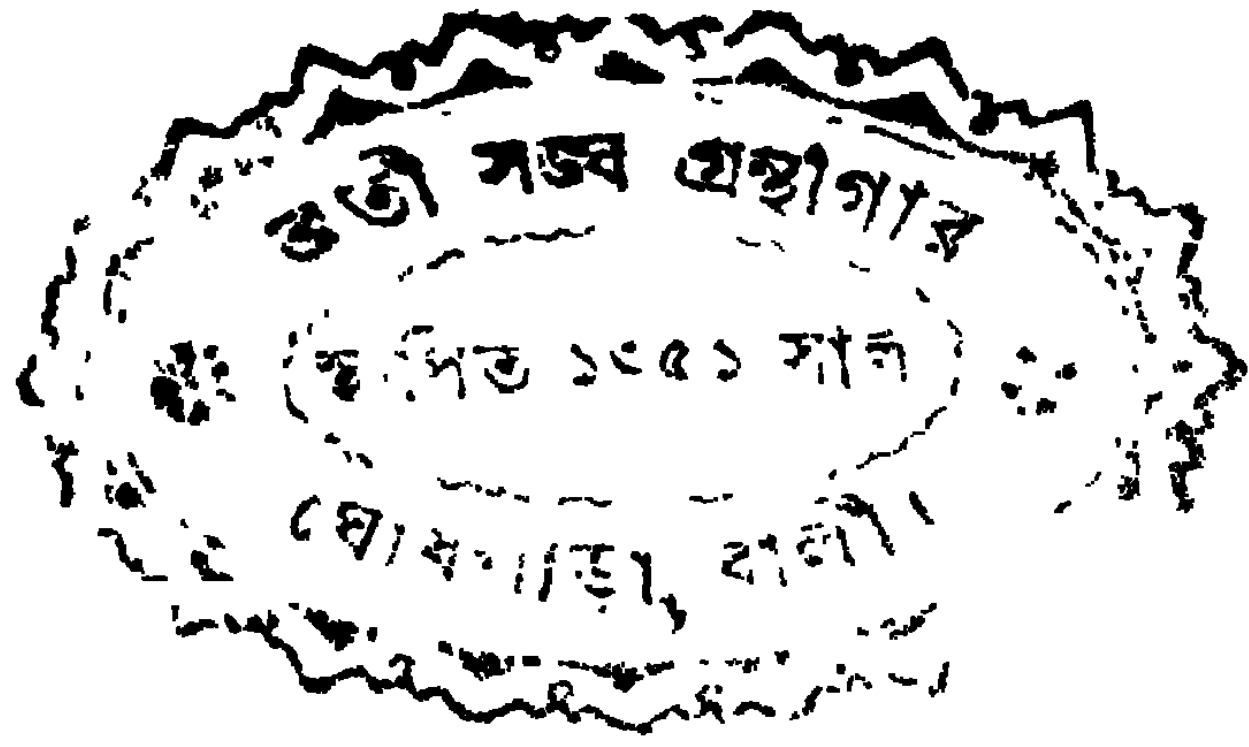 ব্রতী সঙ্ঘ গ্রন্থাগার
স্থাপিত ১৩৫১ সাল
ঘোষপাড়া, বালী।